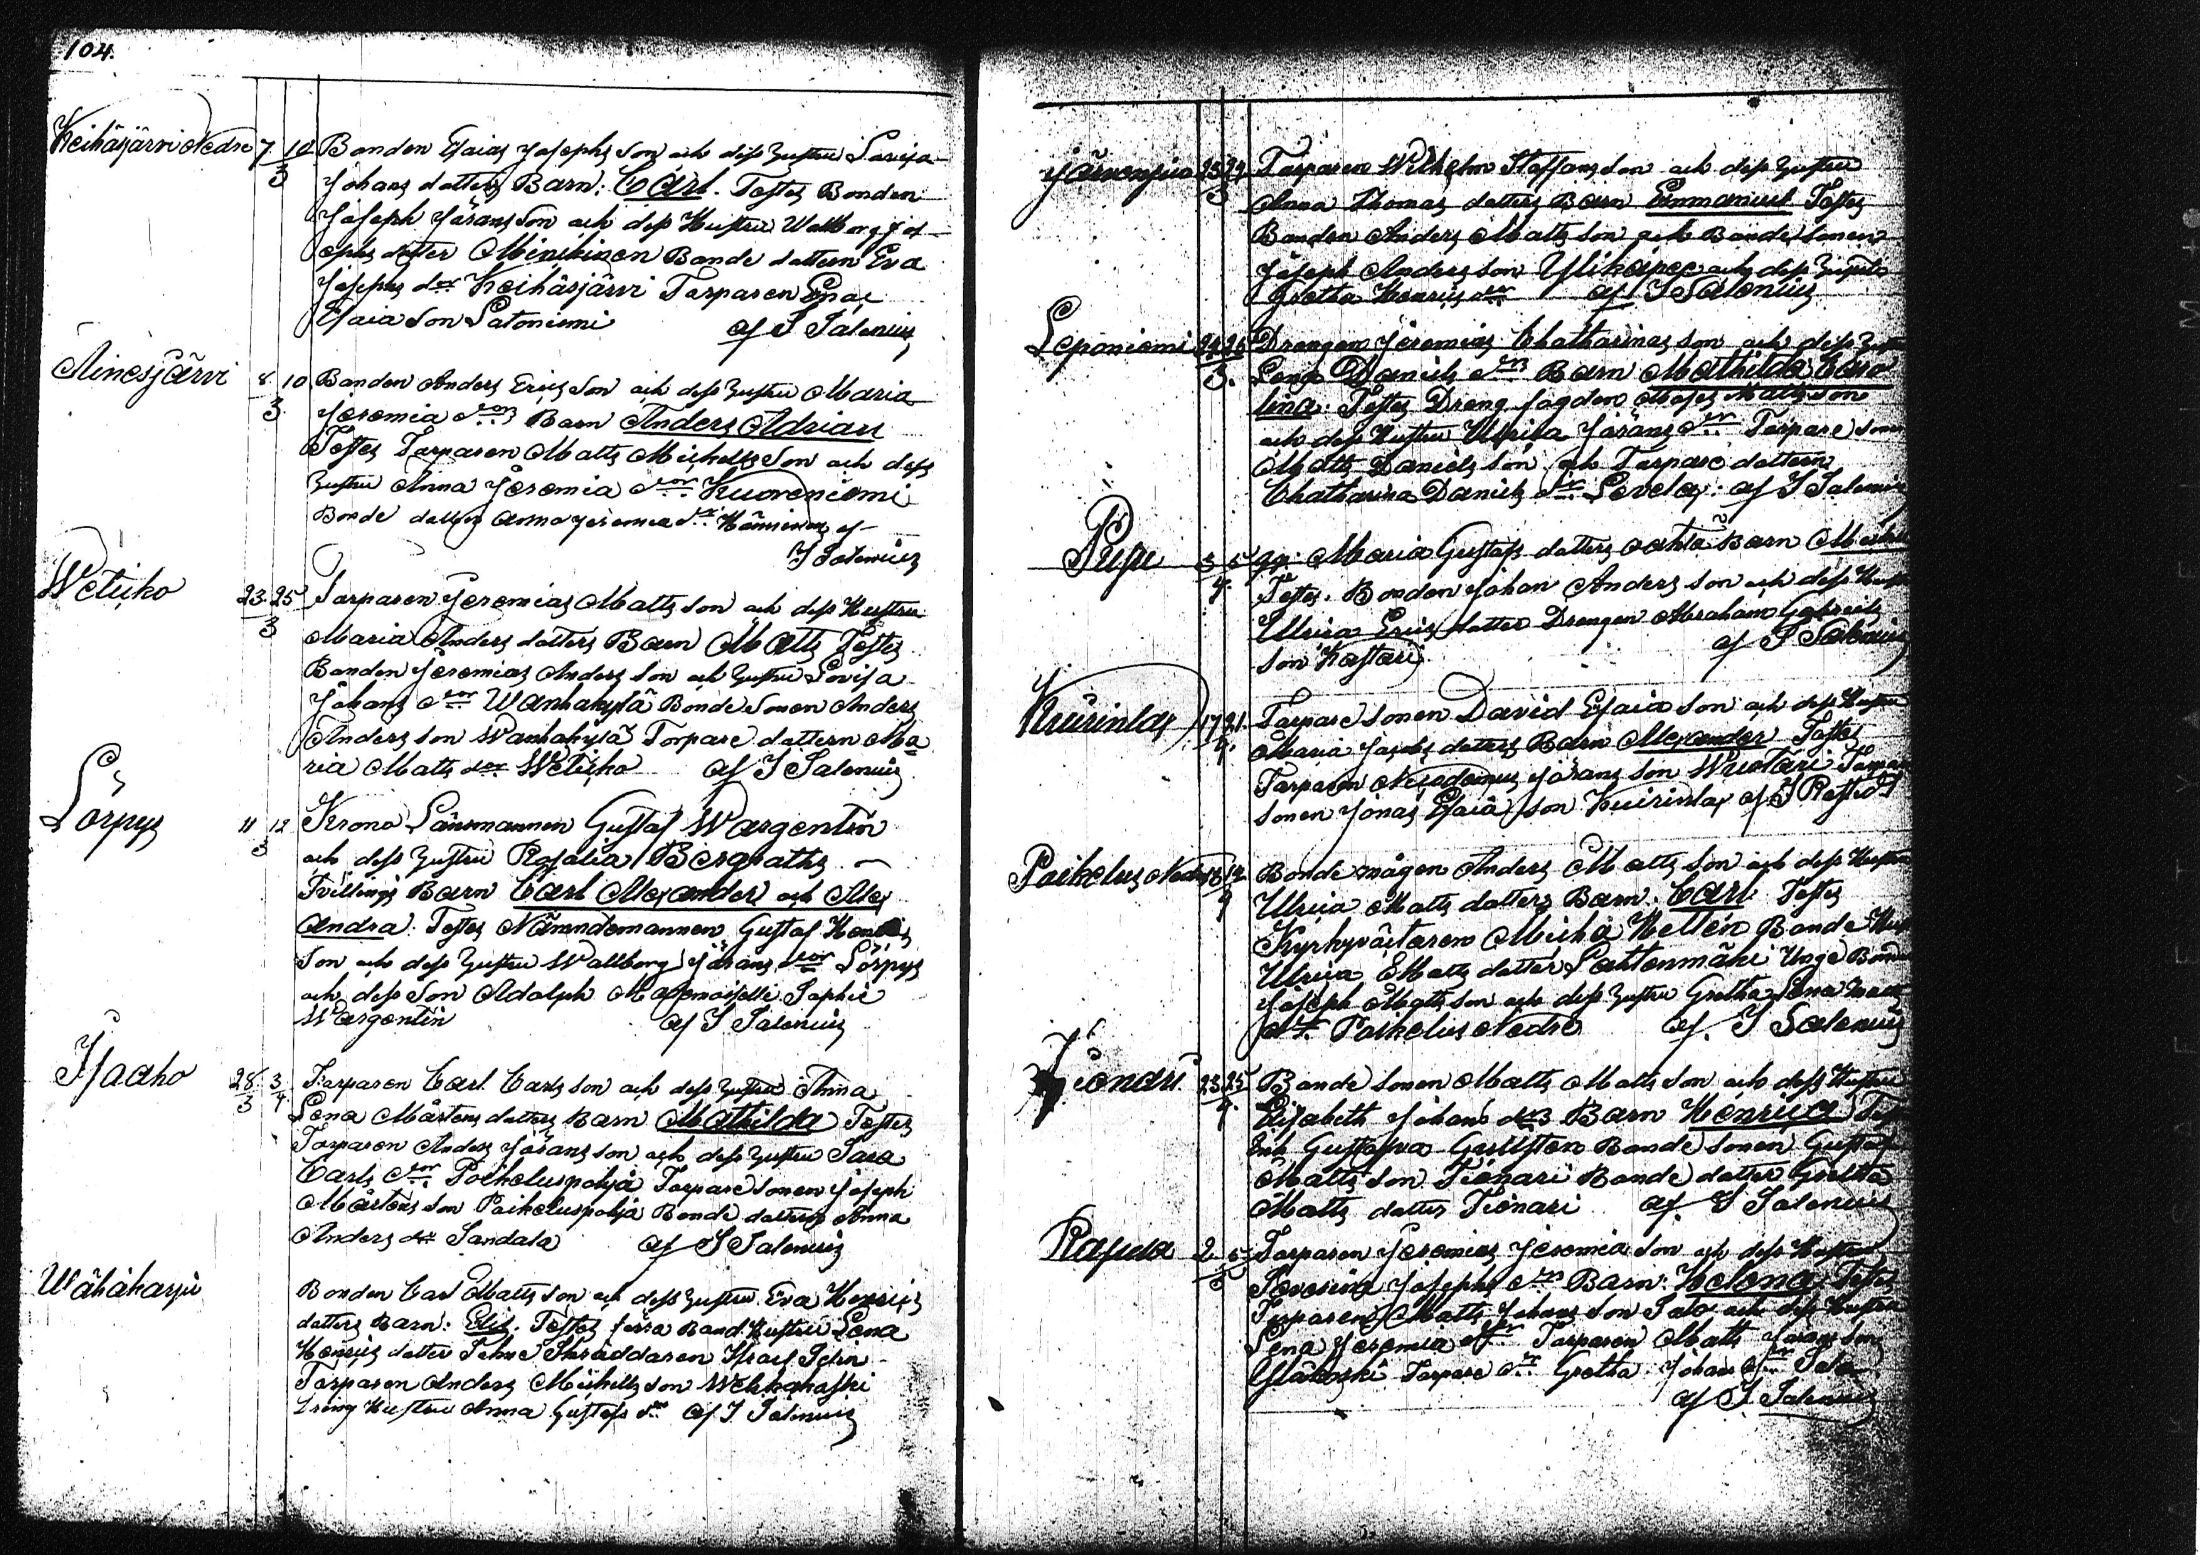 104.
Keihäsjärvi Nedre 7 10/3 Bonden Esaias Josephs Son och dess Hustru Lovisa
Johans dotters Barn: Carl. Testes Bonden
Joseph Jöransson och dess Hustru Walborg Jos-
ephs dotter Minikinen Bonde dottern Eva
Josephs dotr Keihäsjärvi Torparen Enos
Esaia Son Latoniemi af I Salenius
Ainesjärvi 8 10/3 Bonden Anders Erics Son och dess Hustru Maria
Jeremia drs Barn Anders Adrian
Testes Torparen Matts Michels Son och dess
Hustru Anna Jeremia dotr Kuoreniemi
Bonde dotter Anna Jeremia dr af
I Salenius
Wetiko 23 25/3 Torparen Jeremias Matts Son och dess Hustru
Maria Anders dotters Barn Matts Testes
Bonden Jeremias Anders Son och Hustru Lovisa
Johans dotr Wanhakylä Bonde Sonen Anders
Anders son Wanhakylä Torpare dottern Ma
ria Matts dotr Wetiko af I Salenius
Lörpys 11 12/3 Krono Länsmannen Gustaf Wargentin
och dess Hustru Rosalia Bergraths
Tvillings Barn Carl Alexander och Alex
andra. Testes Nämndemannen Gustaf Henrics
Son och dess Hustru Wallborg Jörans dotr Lörpys
och dess Son Adolph Mademoiselle Sophie
Wargentin af I Salenius
Isaaho 28/3 3/4 Torparen Carl Carls son och dess Hustru Anna
Lena Mårtens dotters Barn Mathilda Testes
Torparen Anders Jörans son och dess Hustru Sara
Carls dotr Poikeluspohja Torpare sonen Joseph
Mårtens son Poikeluspohja Bonde dotter Anna
Anders dotr Sandala af I Salenius
Wähäharju
Bonden Carl Matts son och dess Hustru Eva Henrics
dotters Barn: Elis. Testes förra Bond Hustru Lena
Henrics dotter Skräddaren Israel
Torparen Anders Michels son
Dreng Hustru Anna Gustafs dr af I Salenius
Järvensivu 25 29/3 Torparen Wilhelm Staffans son och dess Hustru
Anna Thomas dotters Barn Emmanuel Testes
Bonden Anders Matts son och Bonde Sonen
Joseph Anders son Ylikapee och dess Hustru
Gretha Henrics dotr af I Salenius
Leponiemi 24 26/3. Drengen Jeremias Chatharinas son och dess
Lena Daniels drs Barn Mathilda Caro
lina. Testes Dreng fogden Moses Matts son
och dess Hustru Ulrica Jörans dr Torpare sonen
Matts Daniels son och Torpare dottern
Chatharina Daniels dr Levela. af I Salenius
Puju 3 5/4. Maria Gustafs dotters oächta Barn
Testes. Bonden Johan Anders son och dess
Ulrica Erics dotter Drengen Abraham Gabriels
son Kastari af I Salenius
Kuirinlax 17 21/4. Torpare sonen David Esaia son och dess Hustru
Maria Jacobs dotters Barn Alexander Testes
Torparen Nicodemus Jörans son Wuotari
sonen Jonas Esaiä son Kuirinlax af I
Poikelus Nedre 18 19/4 Bonde mågen Anders Matts son och dess Hustru
Ulrica Matts dotters Barn. Carl Testes
Kyrkyväktaren Micha Hellén Bonde
Ulrica Matts dotter Lahtenmäki Unge Bonden
Joseph Matts son och dess Hustru Gretha Lena
Poikelus Nedre af. I Salenius
Tionari 23 25/4. Bonde sonen Matts Matts son och dess Hustru
Elisabeth Johans drs Barn Henrica
Enk Gustafva Gullsten Bonde sonen Gustaf
Matts son Tionari Bonde dotter Gretha
Matts dotter Tionari af. I Salenius
Rajuda 2 5/5 Torparen Jeremias Jeremia son och dess Hustru
Severina Josephs drs Barn: Helena Testes
Torparen Matts Johans son Salo och dess Hustru
Lena Jeremia dr Torparen Matts Jörans son
Torpare dr Gretha Johans dr
af I. Salenius